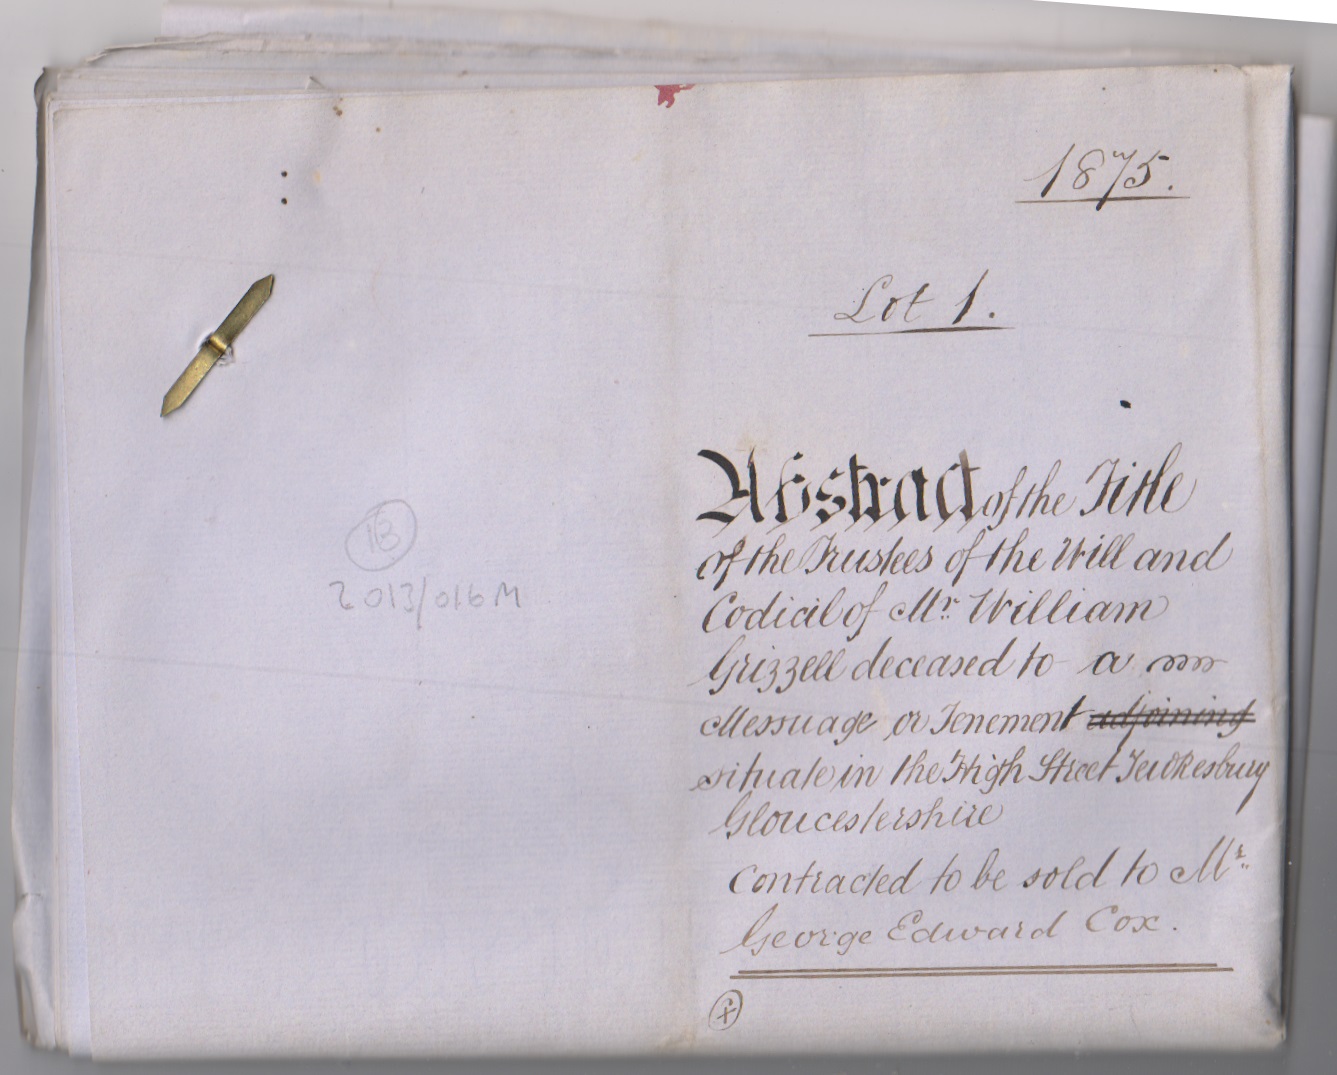 1875.
Lot 1.
Abstract of the Title
of the Trustees of the Will and
Codicil of Mr. William
Grizzell deceased to a
Messuage or Tenement adjoining
situate in the High Street Tewkesbury
Gloucestershire
contracted to be sold to Mr.
George Edward Cox.
1B
2013/016M